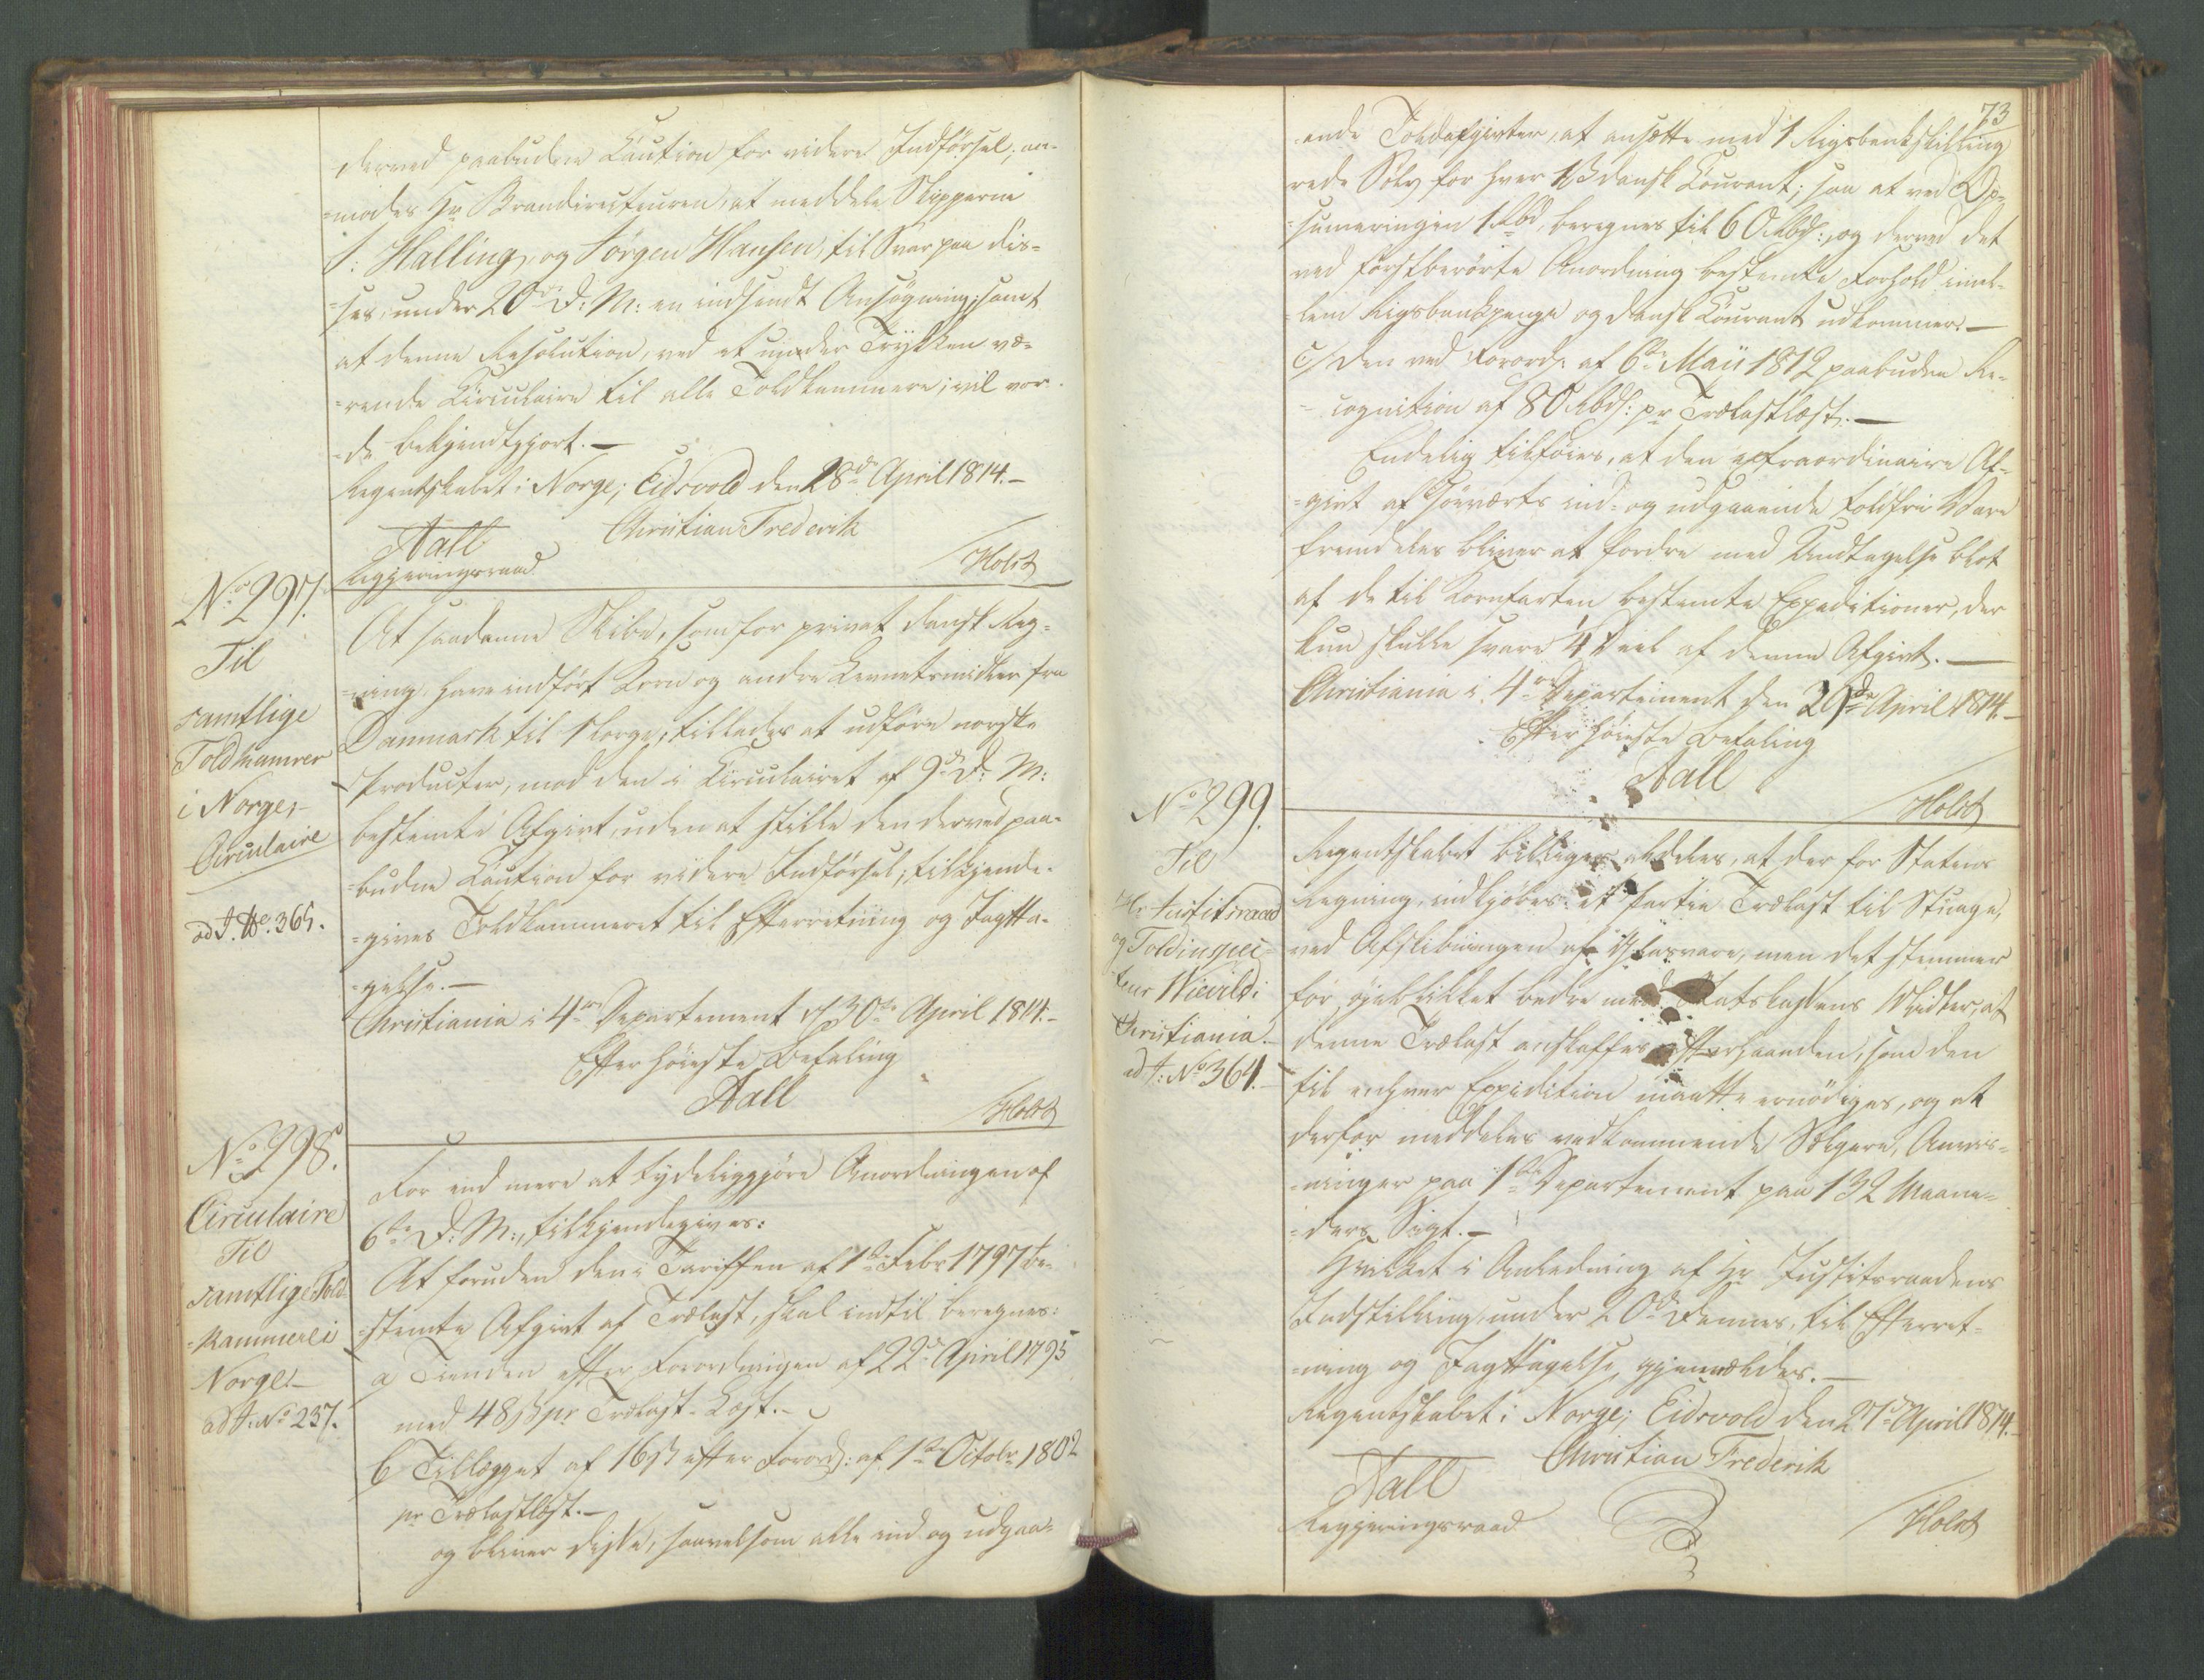 derved paabudne Caution for videre Indførsel; an-
=modes Hr Branddirecteuren, at meddele Skipperne
S: Halling, og Jørgen Hansen, til Svar paa dis-
=ses, under 20de d: M: en indsendt Ansøgning; samt
at denne Resolution, ved et under Trykken væ-
=rende Circulaire til alle Toldkammere, vil vor-
=de bekjendtgjort.—
Regentskabet i Norge; Eidsvold den 28de April 1814.—
Christian Frederik
Aall
Regjeringsraad
Holst
No 297.
Til
samtlige
Toldkamrer
i Norge,—
Circulaire
ad J. No. 365.
At saadanne Skibe, som for privat dansk Reg-
=ning have indført Korn og andre Levnetsmidler fra
Danmark til Norge, tillades at udføre norske
Producter, mod den i Circulairet af 9de d: M:
bestemte Afgivt, uden at stille den derved paa-
=budne Caution for videre Indførsel; tilkjende-
=gives Toldkammeret til Efterretning og Iagtta-
=gelse.—
Christiania i 4de Departement d 30te April 1814.—
Efter høieste Befaling
Aall
Holst
No 298.
Circulaire
Til
samtlige Told-
=kammere i
Norge.—
ad J: No 237.
For end mere at tydeliggjøre Anordningen af
6te d: M:, tilkjendegives:
At foruden den i Tariffen af 1ste Febr 1797 be-
=stemte Afgivt af Trælast, skal indtil beregnes:
a Tienden efter Forordningen af 22de April 1795
med 48 ß pr Trælast-Læst.—
b Tillægget af 16 ß efter Forord: af 1ste Octobr 1802
pr Trælastlæst.—
og bliver disse, saavelsom alle ind og udgaa-
73
=ende Toldafgivter, at ansætte med 1 Rigsbankskilling
rede Sølv for hver 1 ß dansk Courant; saa at ved
=sumeringen 1 Rbd. beregnes til 6 Rbd:, og derved det
ved førstberørte Anordning bestemte Forhold imel-
=lem Rigsbankpenge og dansk Courant udkommer.—
c/ Den ved Forord: af 6te Maii 1812 paabudne Re-
=cognition af 80 Rbd: pr Trælastlæst.—
Endelig tilføies, at den extraordinaire Af-
=givt af søeværts ind- og udgaaende toldfri Vare
fremdeles bliver at fordre med Undtagelse blot
af de til Kornfarten bestemte Expeditioner, der
kun skulle svare 1/4 Deel af denne Afgivt.—
Christiania i 4de Departement den 29de April 1814.—
Efter høieste Befaling
Aall
Holst
No 299.
Til
Hr Justitsraad
og Toldinspec-
=teur Wievild i
Christiania.—
ad J: No 364.—
Regentskabet billiger aldeles, at der for Statens
Regning, indkjøbes et Partie Trælast til Stuage,
ved Afskibningen af Glasvare, men det stemmer
for øieblikket bedre med Statskassens Midler, at
denne Trælast anskaffes efterhaanden, som den
til enhver Expedition maatte ernødiges, og at
derfor meddeles vedkommende Sælgere, Anvis-
=ninger paa 1ste Departement paa 1 á 2 Maane-
=ders Sigt.—
Hvilket i Anledning af Hr Justitsraadens
Indstilling, under 20de dennes, til Efterret-
=ning og Iagttagelse, gjenmældes.—
Regentskabet i Norge; Eidsvold den 27de April 1814.—
Christian Frederik
Aall
Regjeringsraad
Holst